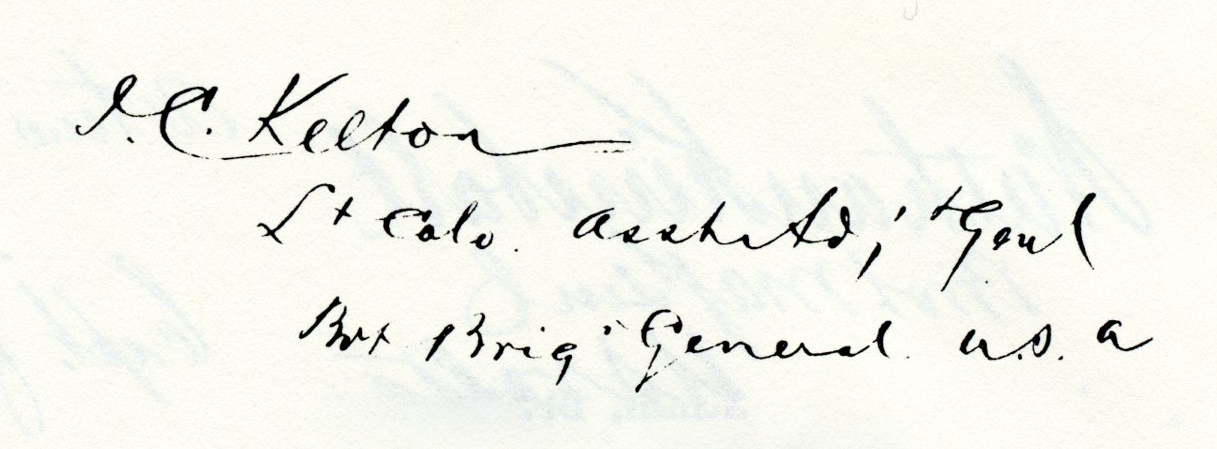 J. C. Kelton
Lt Colo. Asst Adj't Genl
Bvt Brig General U.S. A